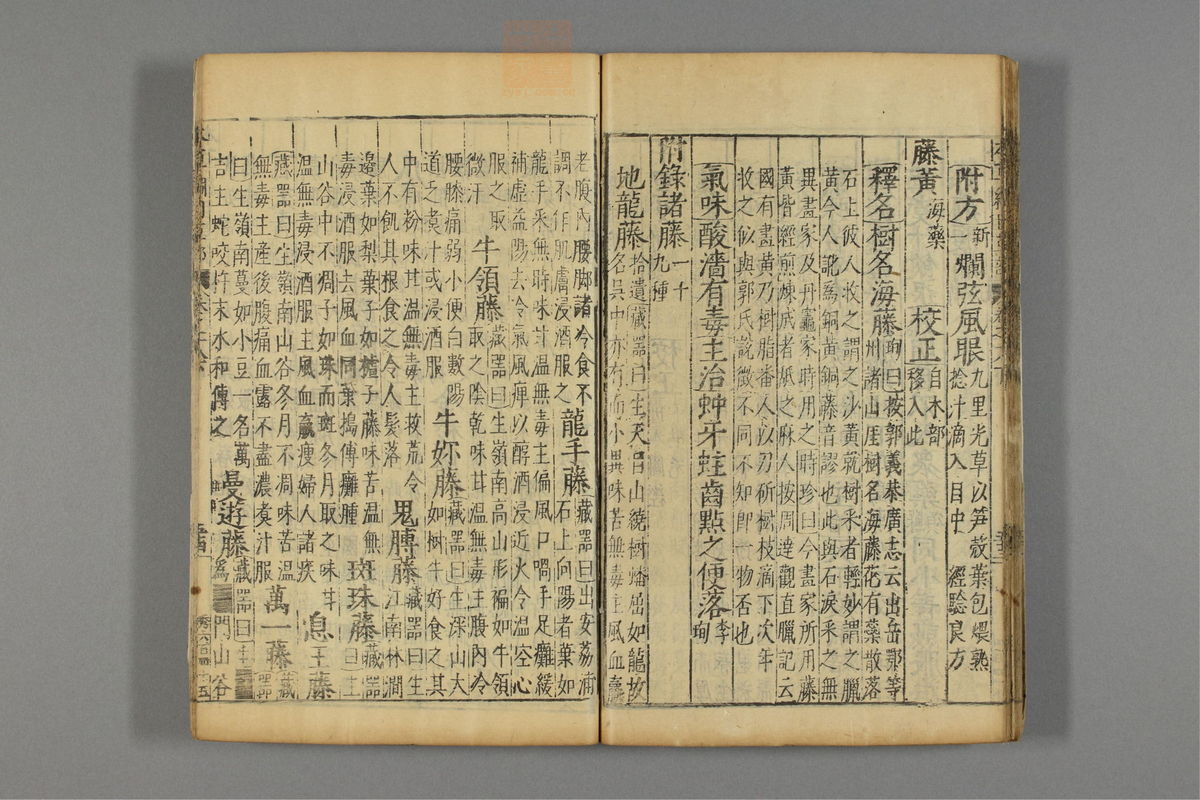 附方新一爛弦風眼九里光草以笋殼葉包煨熟捻汁滴入目中 經驗良方
藤黃海藥 校正自木部移入此
釋名樹名海藤珣曰按郭義恭廣志云出岳鄂等州諸山厓樹名海藤花有蘂散落
石上彼人收之謂之沙黃就樹采者輕妙謂之臘
黃今人訛爲銅黃銅藤音謬也此與石淚采之無
異畫家及丹竈家時用之時珍曰今畫家所用藤
黃皆經煎煉成者舐之麻人按周達觀直臘記云
國有畫黃乃樹脂番人以刀斫樹枝滴下次年
收之似與郭氏說微不同不知即一物否也
氣味酸濇有毒主治蚛牙蛀齒點之便落李珣
附錄諸藤一十九種
地龍藤拾遺藏器曰生天目山繞樹蟠屈如龍故名吳中亦有而小異味苦無毒主風血羸
老腹內腰脚諸冷食不
調不作肌膚浸酒服之 龍手藤藏器曰出安荔浦石上向陽者葉如
龍手采無時味甘溫無毒主偏風口喎手足癱緩
補虛益陽去冷氣風痺以醇酒浸近火令溫空心
服之取
微汗 牛領藤藏器曰生嶺南高山形褊如牛領取之陰乾味甘溫無毒主腹內冷
腰膝痛弱小便白數陽
道乏煮汁或浸酒服 牛奶藤藏器曰生深山大樹如樹牛好食之其
中有粉味甘溫無毒主救荒令
人不飢其根食之令人髮落 鬼膊藤藏器曰生江南林澗
邊葉如梨葉子如櫨子藤味苦溫無
毒浸酒服去風血同葉搗傅癰腫 斑珠藤藏器曰生
山谷中不凋子如珠而斑冬月取之味甘
溫無毒浸酒服主風血羸瘦婦人諸疾 息王藤
藏器曰生嶺南山谷冬月不凋味苦溫
無毒主產後腹痛血露不盡濃煮汁服 萬一藤藏器
曰生嶺南蔓如小豆一名萬
吉主蛇咬杵末水和傅之 曼遊藤藏器曰生
門山谷